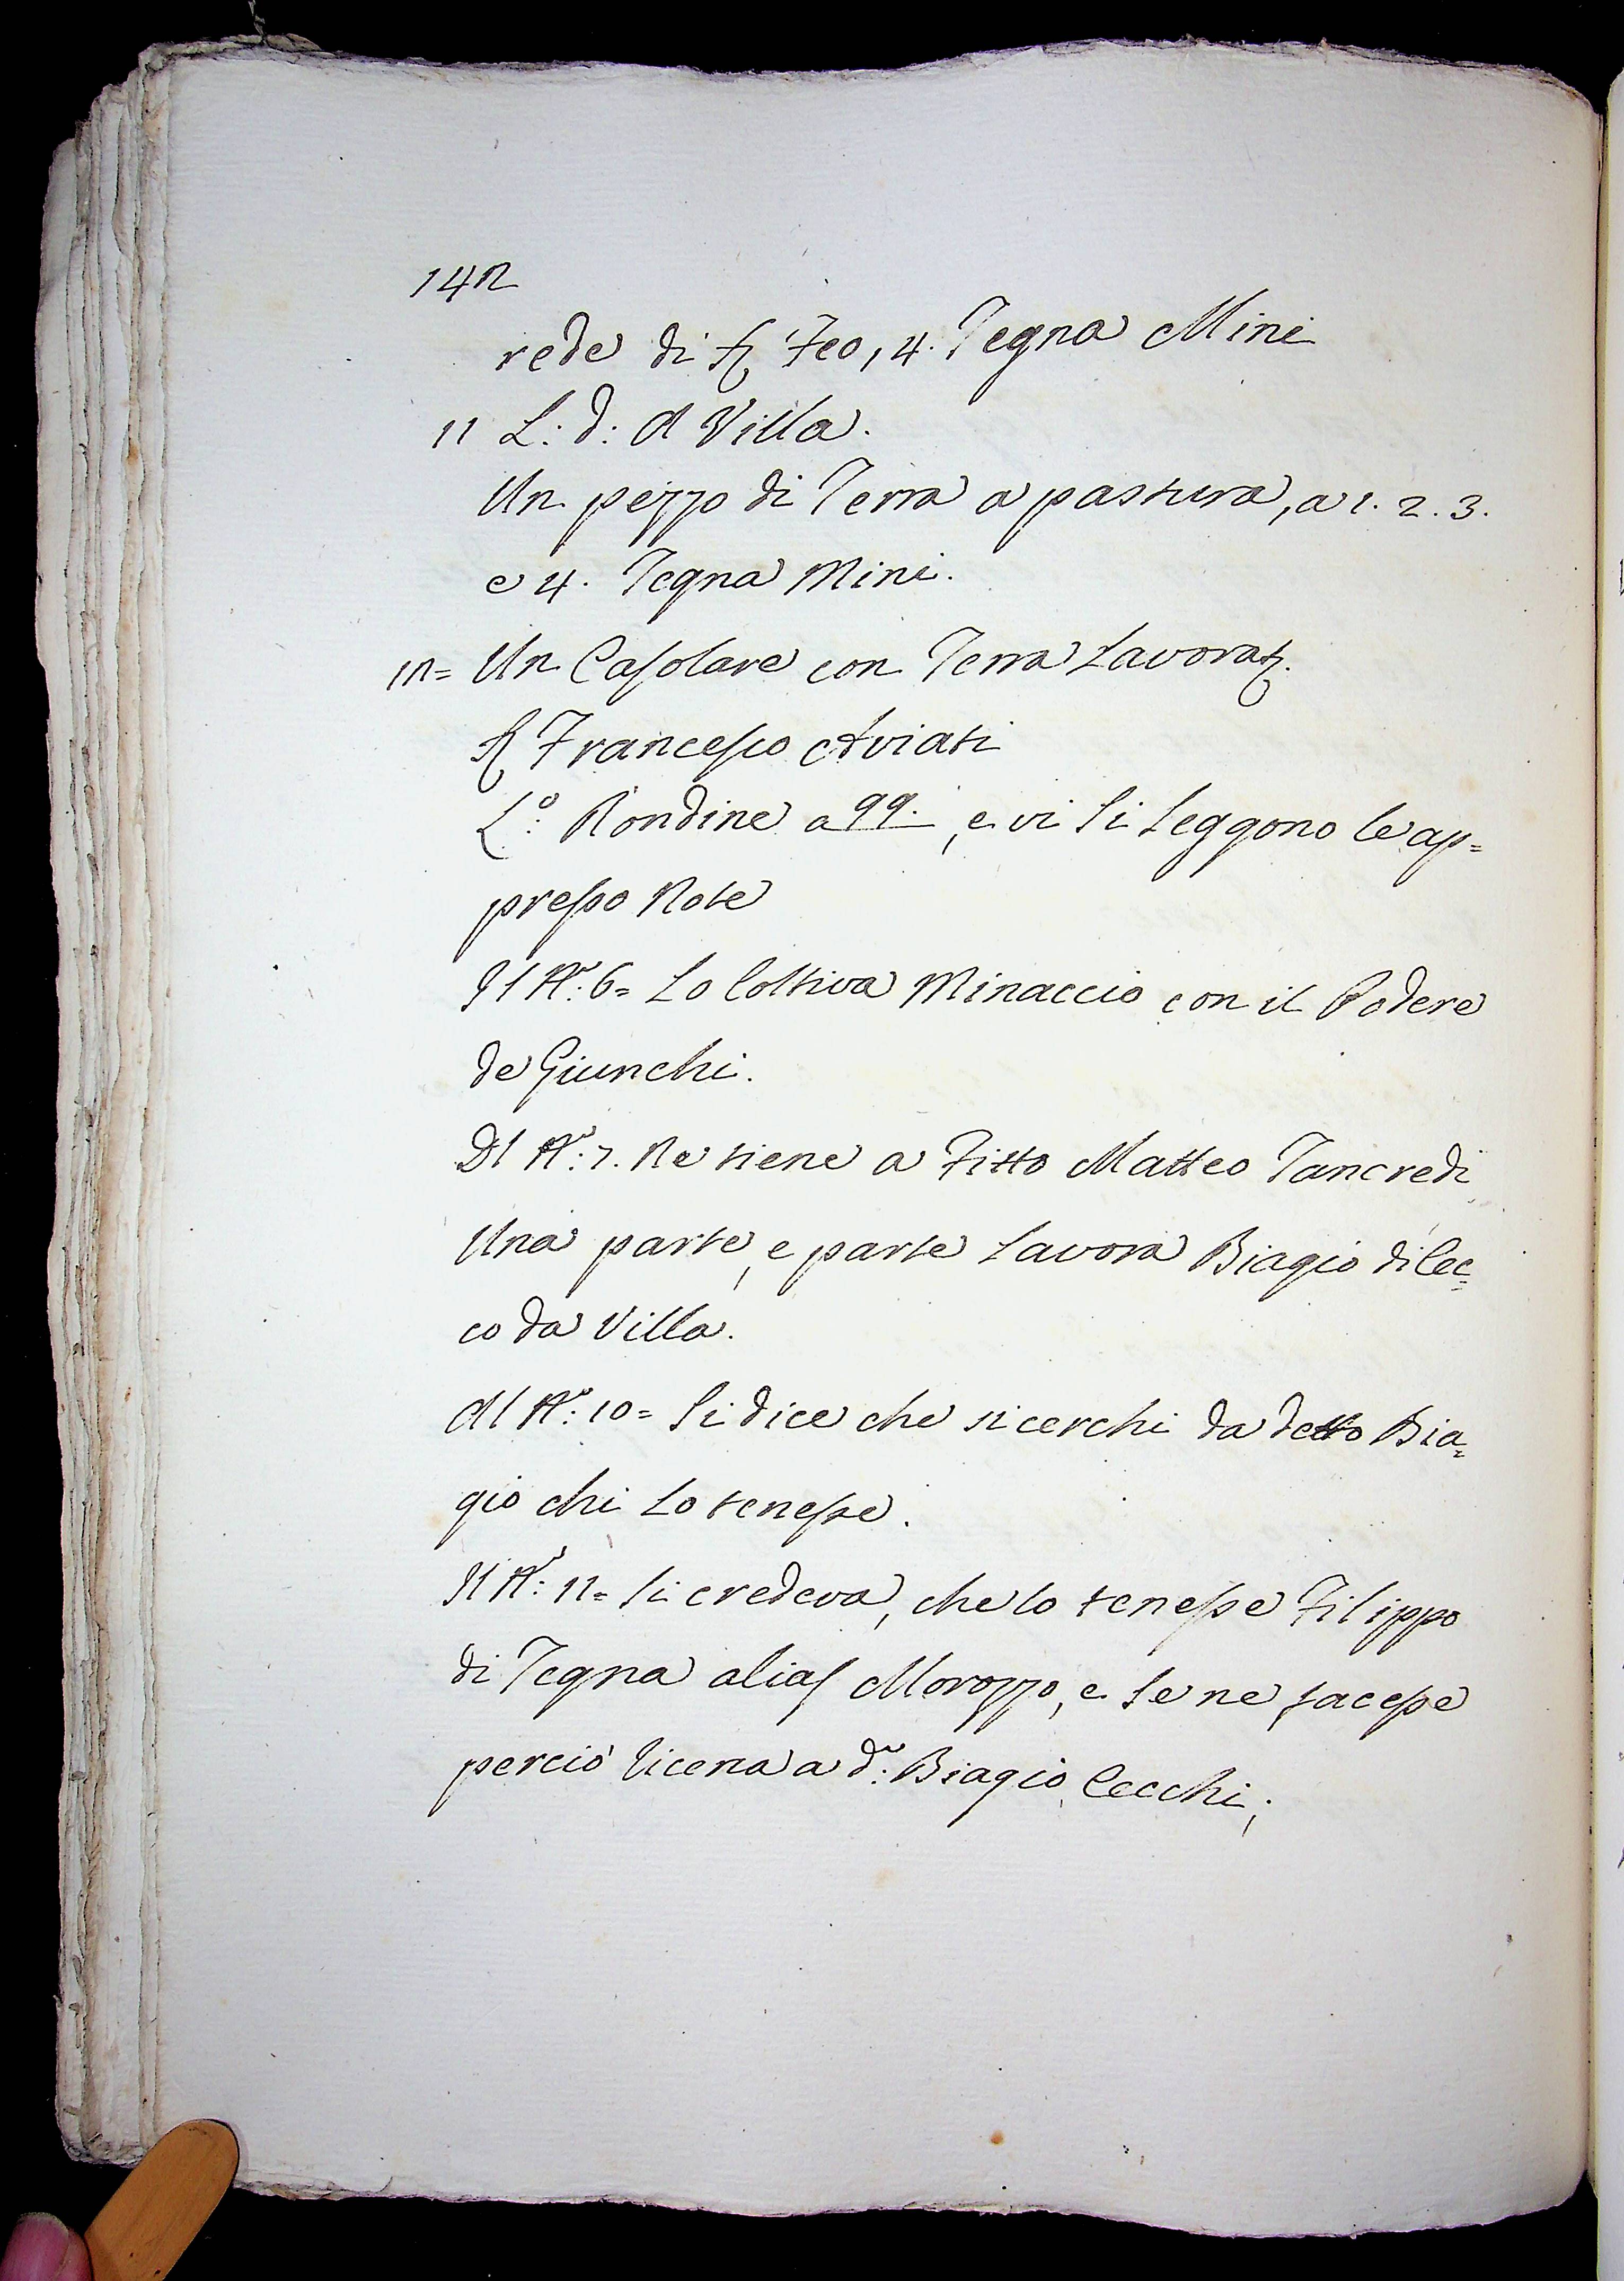 142
rede di S. Feo, 4. Tegna Mini
11 L: d: A Villa.
Un pezzo di Terra a pastura, a 1. 2. 3.
e 4. Tegna Mini.
12= Un Casolare con Terra Lavorat.
S. Francesco Aviati
L.o: Rondine a 99., e vi si Leggono le ap=
presso Note
Il N.o: 6= Lo Coltiva Minaccio con il Podere
de Giunchi.
Dl N.o: 7. Ne tiene a Fitto Matteo Tancredi
Una parte, e parte Lavora Biagio di Cec=
co da Villa.
Al N.o: 10= Si dice che si cerchi da detto Bia=
gio chi Lo tenesse.
Il N.o: 12= Si credeva, che lo tenesse Filippo
di Tegna alias Morozzo, e se ne facesse
perciò ricerca a d.o: Biagio Cecchi;